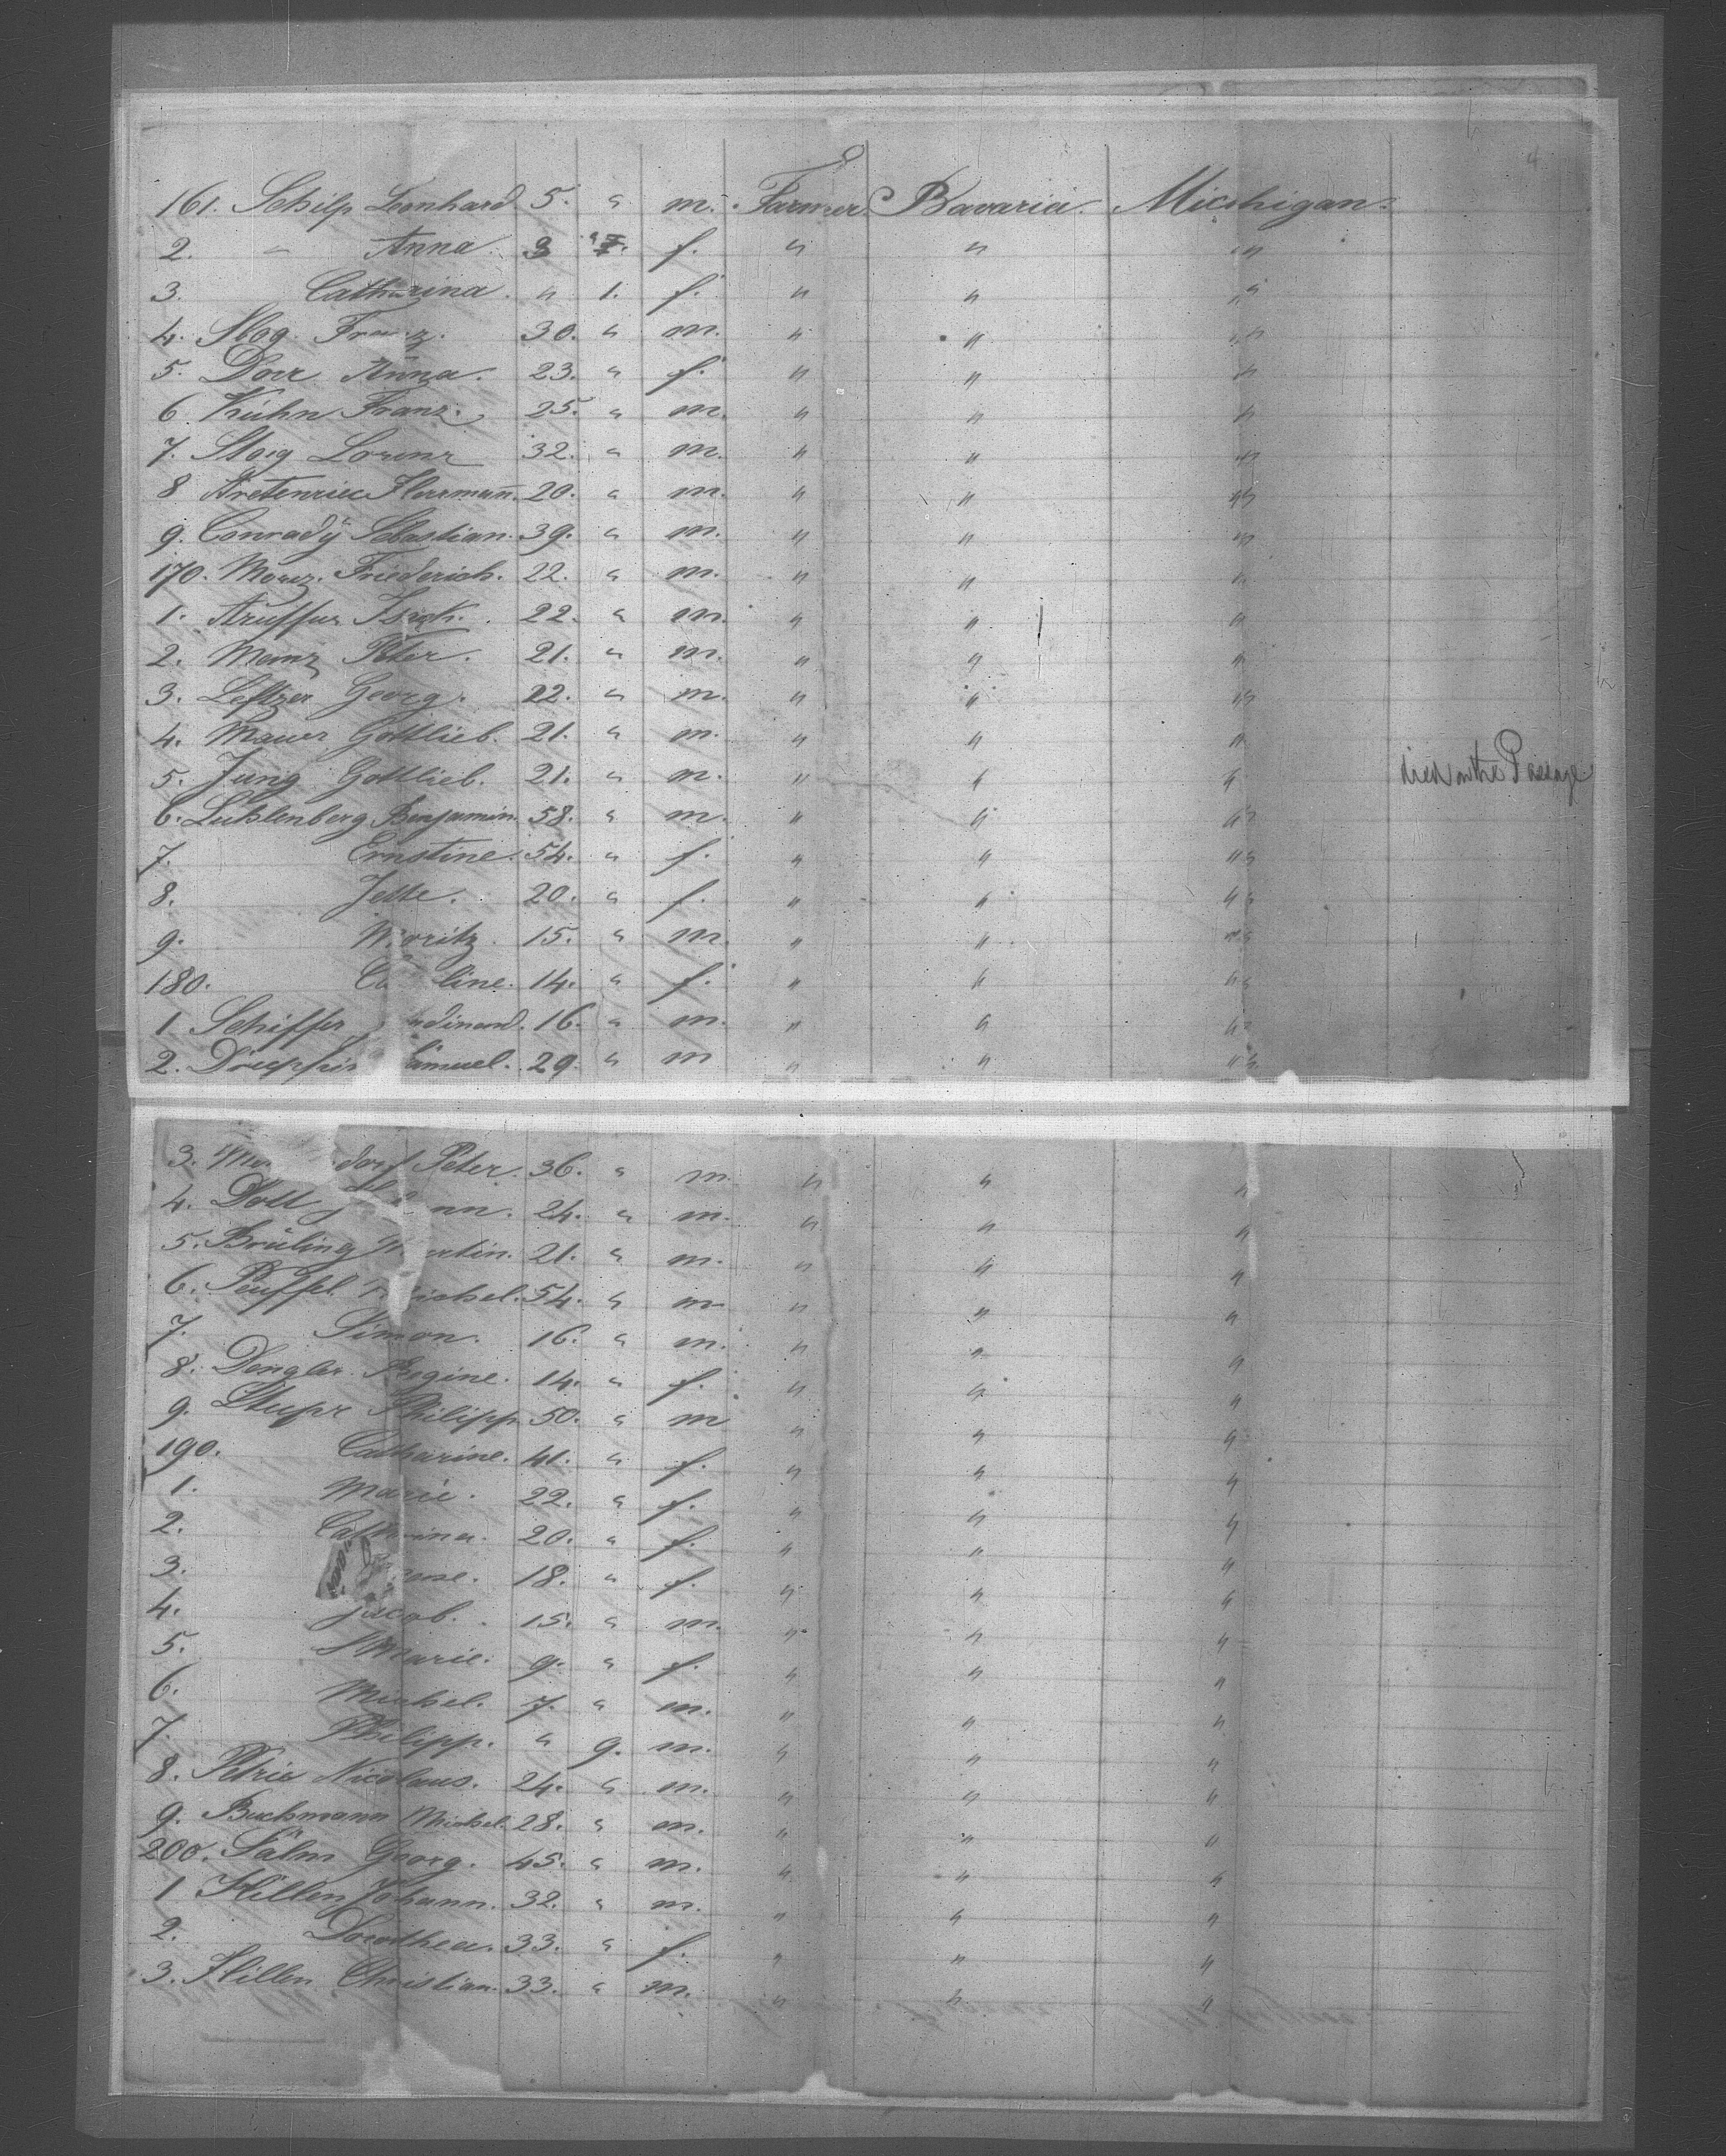 161. Schilp Leonhard 5. " m. Farmer Bavaria. Michigan.
2. " Anna. 3 " f. " " "
3. Catharina. " 1. f. " " "
4. Franz. 30. " m. " " "
5. Dorr Anna. 23. " f. " " "
6 Kühn Franz. 25. " m. " " "
7. Lorenz 32. " m. " " "
8 Herrmann. 20. " m. " " "
9. Conrady Sebastian. 39. " m. " " "
170. Friederich. 22. " m. " " "
1. 22. " m. " " "
2. Peter. 21. " m. " " "
3. Georg. 22. " m. " " "
4. Mauer Gottlieb. 21. " m. " " "
5. Jung Gottlieb. 21. " m. " " " died on the Passage
6. Benjamin. 58. " m. " " "
7. Ernstine. 54. " f. " " "
8. Jette. 20. " f. " " "
9. Moritz. 15. " m. " " "
180. line. 14. " f. " " "
1 Schiffer dinand. 16. " m. " " "
2. amuel. 29. " m " " "
3. dorf Peter. 36. " m. " " "
4. Doll nn. 24. " m. " " "
5. Brüling rtin. 21. " m. " " "
6. ichel. 54. " m " " "
7. Simon. 16. " m. " " "
8. Dengler Regine. 14. " f. " " "
9. Philipp 50. " m " " "
190. Catharine. 41. " f. " " "
1. Marie. 22. " f. " " "
2. Catharina. 20. " f. " " "
3. 18. " f. " " "
4. Jacob. 15. " m. " " "
5. Marie. 9. " f. " " "
6. Michel. 7. " m. " " "
7. Philipp. " 9. m. " " "
8. Petrie Nicolaus. 24. " m. " " "
9. Buchmann Michel. 28. " m. " " "
200. Salm Georg. 45. " m. " " "
1 Hillen Johann. 32. " m. " " "
2. Dorothea. 33. " f. " " "
3. Hillen Christian. 33. " m. " " "